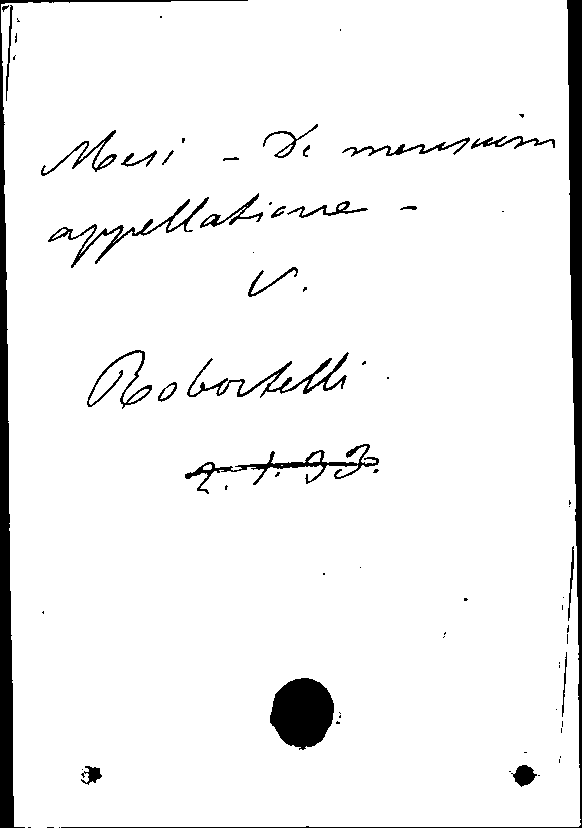 Mesi - De mensium
appellatione -
V.
Robortelli
2. 1. 33.